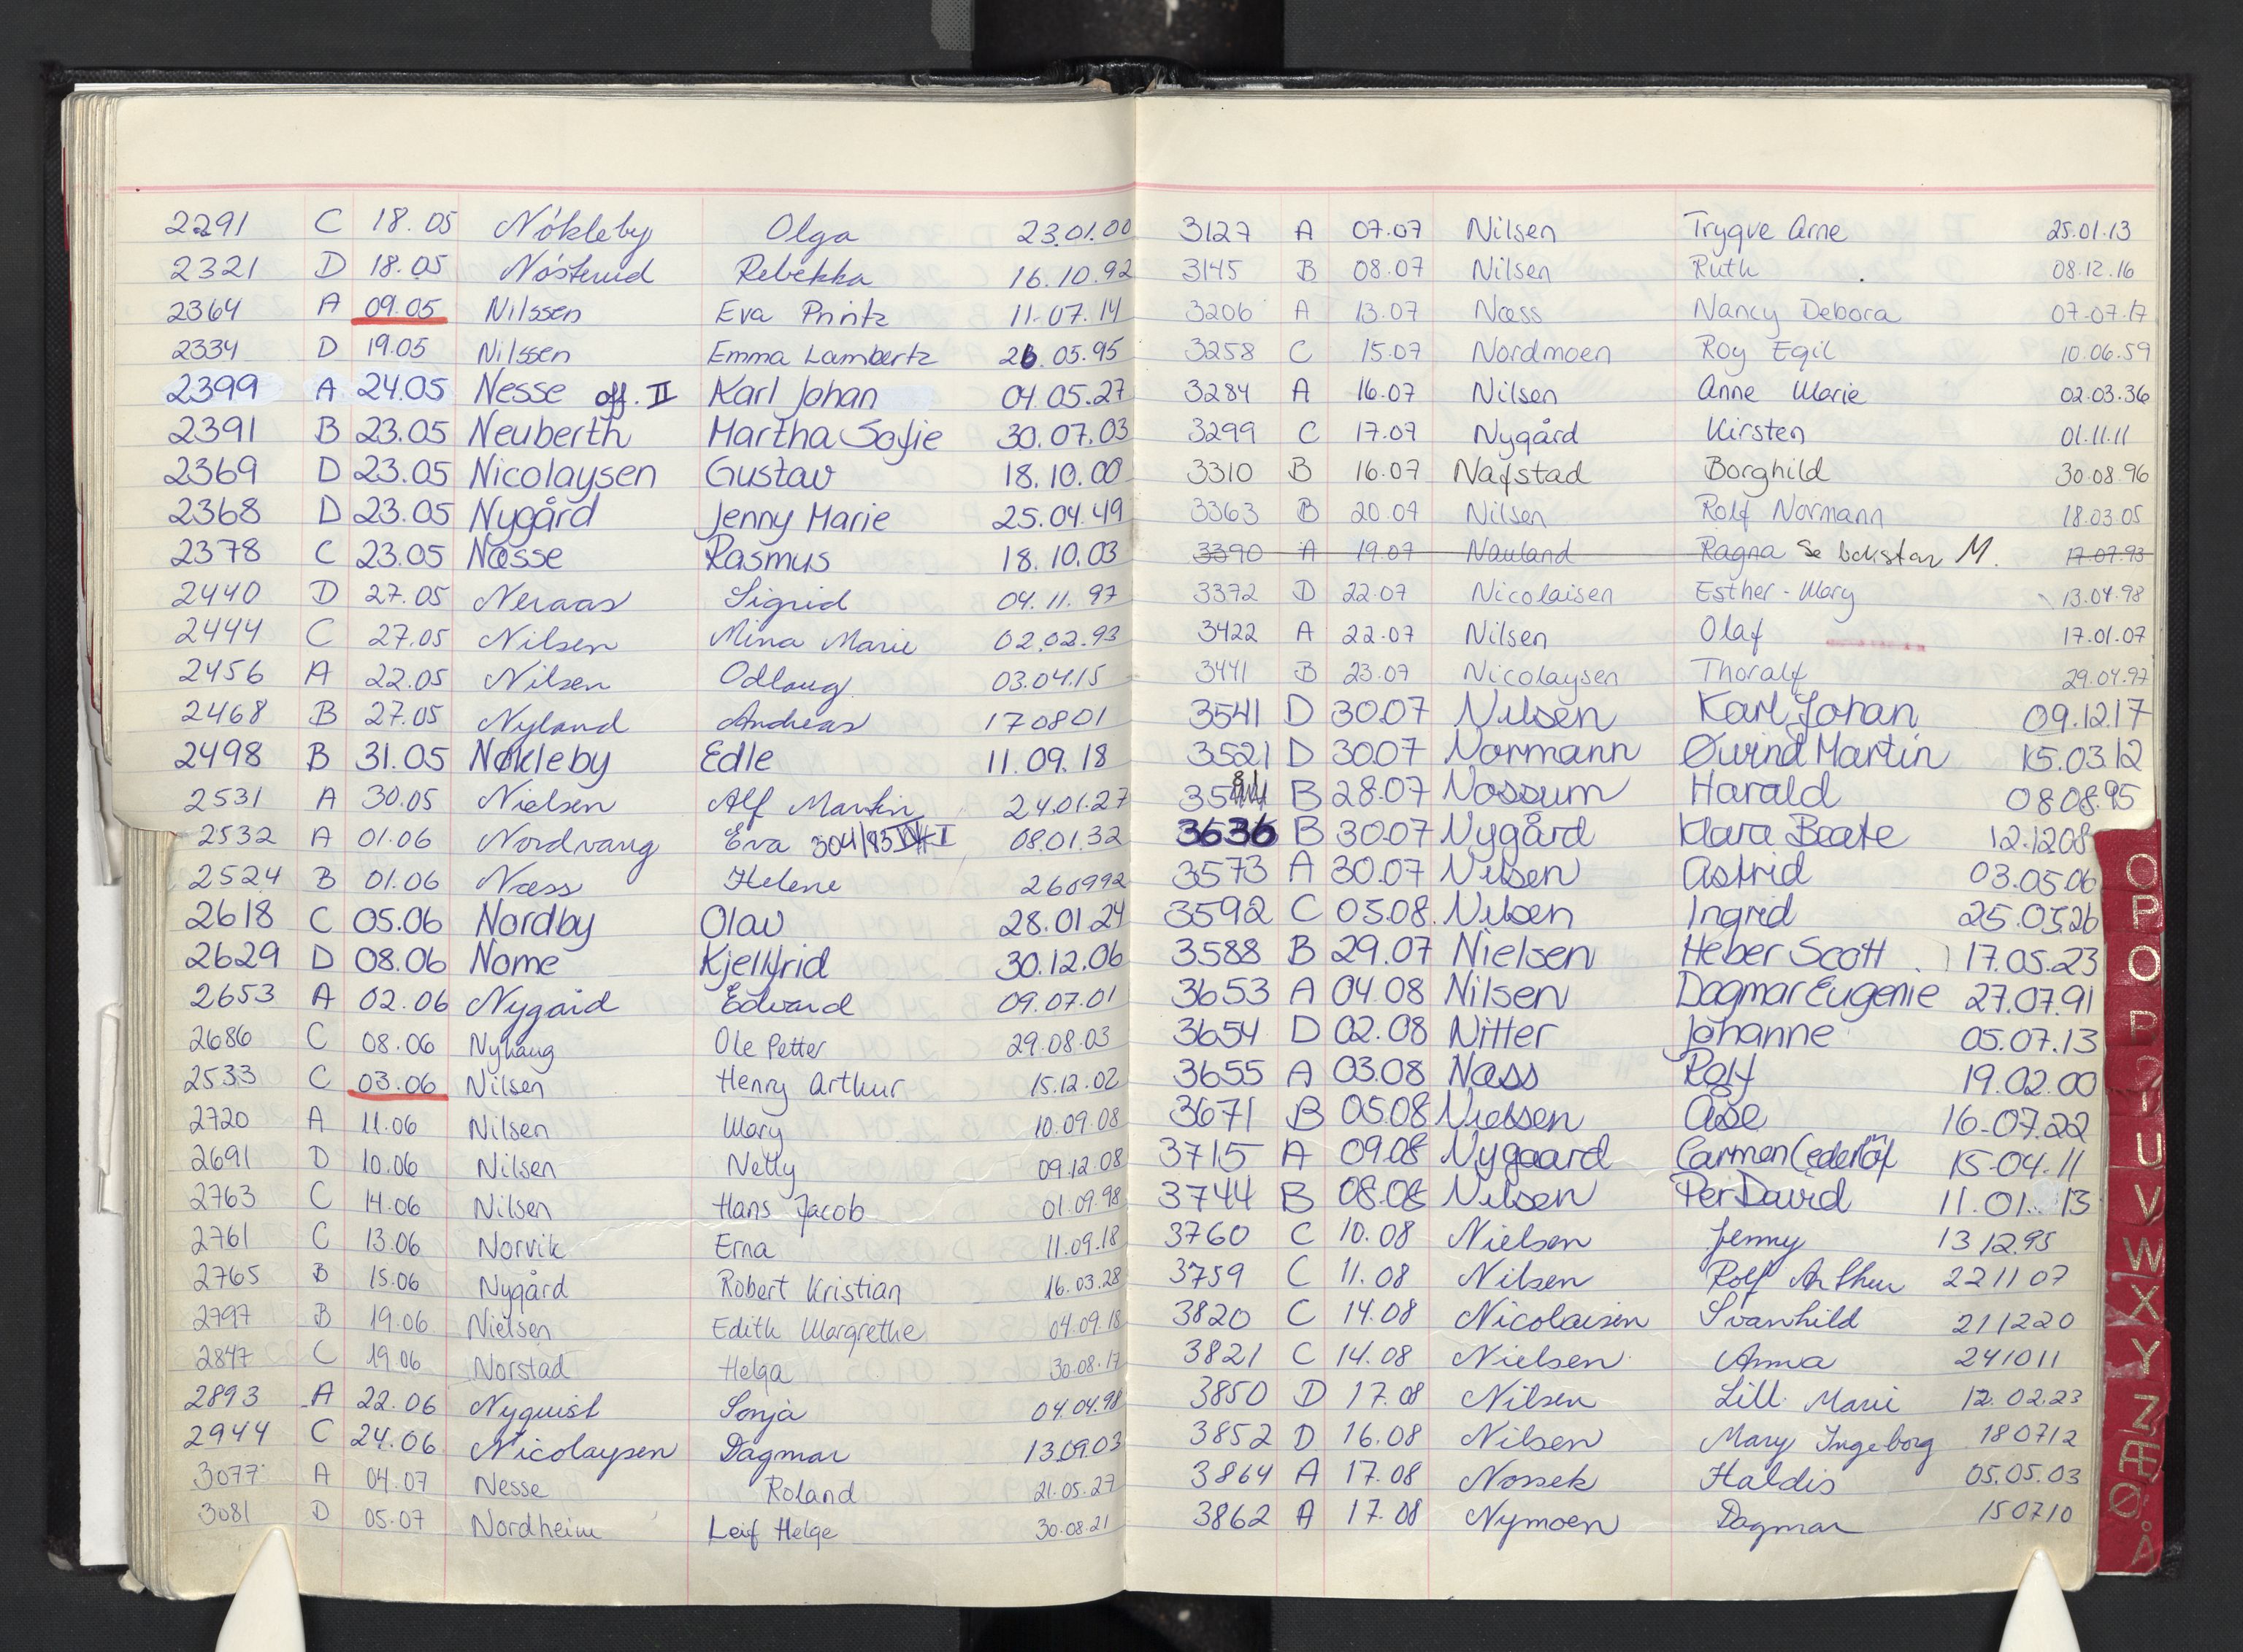 2291 C 18.05 Nökleby Olga 23.01.00
2321 D 18.05 Nösterud Rebekka 16.10.92
2364 A 09.05 Nilssen Eva Printz 11.07.14
2334 D 19.05 Nilssen Emma Lambertz 26.05.95
2399 A 24.05 Nesse off. II Karl Johan 04.05.27
2391 B 23.05 Neuberth Martha Sofie 30.07.03
2369 D 23.05 Nicolaysen Gustav 18.10.00
2368 D 23.05 Nygård Jenny Marie 25.04.49
2378 C 23.05 Næsse Rasmus 18.10.03
2440 D 27.05 Neraas Sigrid 04.11.97
2444 C 27.05 Nilsen Mina Marie 02.02.93
2456 A 22.05 Nilsen Odlaug 03.04.15
2468 B 27.05 Nyland Andreas 170801
2498 B 31.05 Nøkleby Edle 11.09.18
2531 A 30.05 Nielsen Alf Martin 24.01.27
2532 A 01.06 Nordvang Eva 304/83 I 08.01.32
2524 B 01.06 Næss Helene 260992
2618 C 05.06 Nordby Olav 28.01.24
2629 D 08.06 Nome Kjellfrid 30.12.06
2653 A 02.06 Nygård Edvard 09.07.01
2686 C 08.06 Nyhaug Ole Petter 29.08.03
2533 C 03.06 Nilsen Henry Arthur 15.12.02
2720 A 11.06 Nilsen Mary 10.09.08
2691 D 10.06 Nilsen Nelly 09.12.08
2763 C 14.06 Nilsen Hans Jacob 01.09.98
2761 C 13.06 Norvik Erna 11.09.18
2765 B 15.06 Nygård Robert Kristian 16.03.28
2797 B 19.06 Nielsen Edith Margrethe 04.09.18
2847 C 19.06 Norstad Helga 30.08.17
2893 A 22.06 Nyquist Sonja 04.04.98
2944 C 24.06 Nicolaysen Dagmar 13.09.03
3077 A 04.07 Nesse Roland 21.05.27
3081 D 05.07 Nordheim Leif Helge 30.08.21
3127 A 07.07 Nilsen Trygve Arne 25.01.13
3145 B 08.07 Nilsen Ruth 08.12.16
3206 A 13.07 Næss Nancy Debora 07.07.17
3258 C 15.07 Nordmoen Roy Egil 10.06.59
3284 A 16.07 Nilsen Anne Marie 02.03.36
3299 C 17.07 Nygård Kirsten 01.11.11
3310 B 16.07 Nafstad Borghild 30.08.96
3363 B 20.07 Nilsen Rolf Normann 18.03.05
3390 A 19.07 Nauland Ragna Se bokstav M. 17.07.93
3372 D 22.07 Nicolaisen Esther-Mary 13.04.98
3422 A 22.07 Nilsen Olaf 17.01.07
3441 B 23.07 Nicolaysen Thoralf 29.04.97
3541 D 30.07 Nilsen Karl Johan 09.12.17
3521 D 30.07 Normann Øivind Martin 15.03.12
B 28.07 Nossum Harald 08.08.95
3636 B 30.07 Nygård Klara Beate 12.1208
3573 A 30.07 Nilsen Astrid 03.05.06
3592 C 03.08. Nilsen Ingrid 25.05.26
3588 B 29.07 Nielsen Heber Scott 17.05.23
3653 A 04.08 Nilsen Dagmar Eugenie 27.07.91
3654 D 02.08 Nitter Johanne 05.07.13
3655 A 03.08 Næss Rolf 19.02.00
3671 B 05.08 Nielsen Åse 16-07.22
3715 A 09.08 Nygaard Carmen Cederlöf 15-04.11
3744 B 08.08 Nilsen Per David 11.01.13
3760 C 10.08 Nielsen Jenny 13 12.95
3759 C 11.08 Nilsen Rolf Arthur 22 11 07
3820 C 14.08 Nicolaisen Svanhild 211220
3821 C 14.08 Nielsen Anna 241011
3850 D 17.08 Nilsen Lill Marie 12.02.23
3852 D 16.08 Nilsen Mary Ingeborg 180712
3864 A 17.08 Nossek Haldis 05.05.03
3862 A 17.08 Nymoen Dagmar 150710
O
P
O
P
U
V
W
X
Y
Z
Æ
Ø
Å